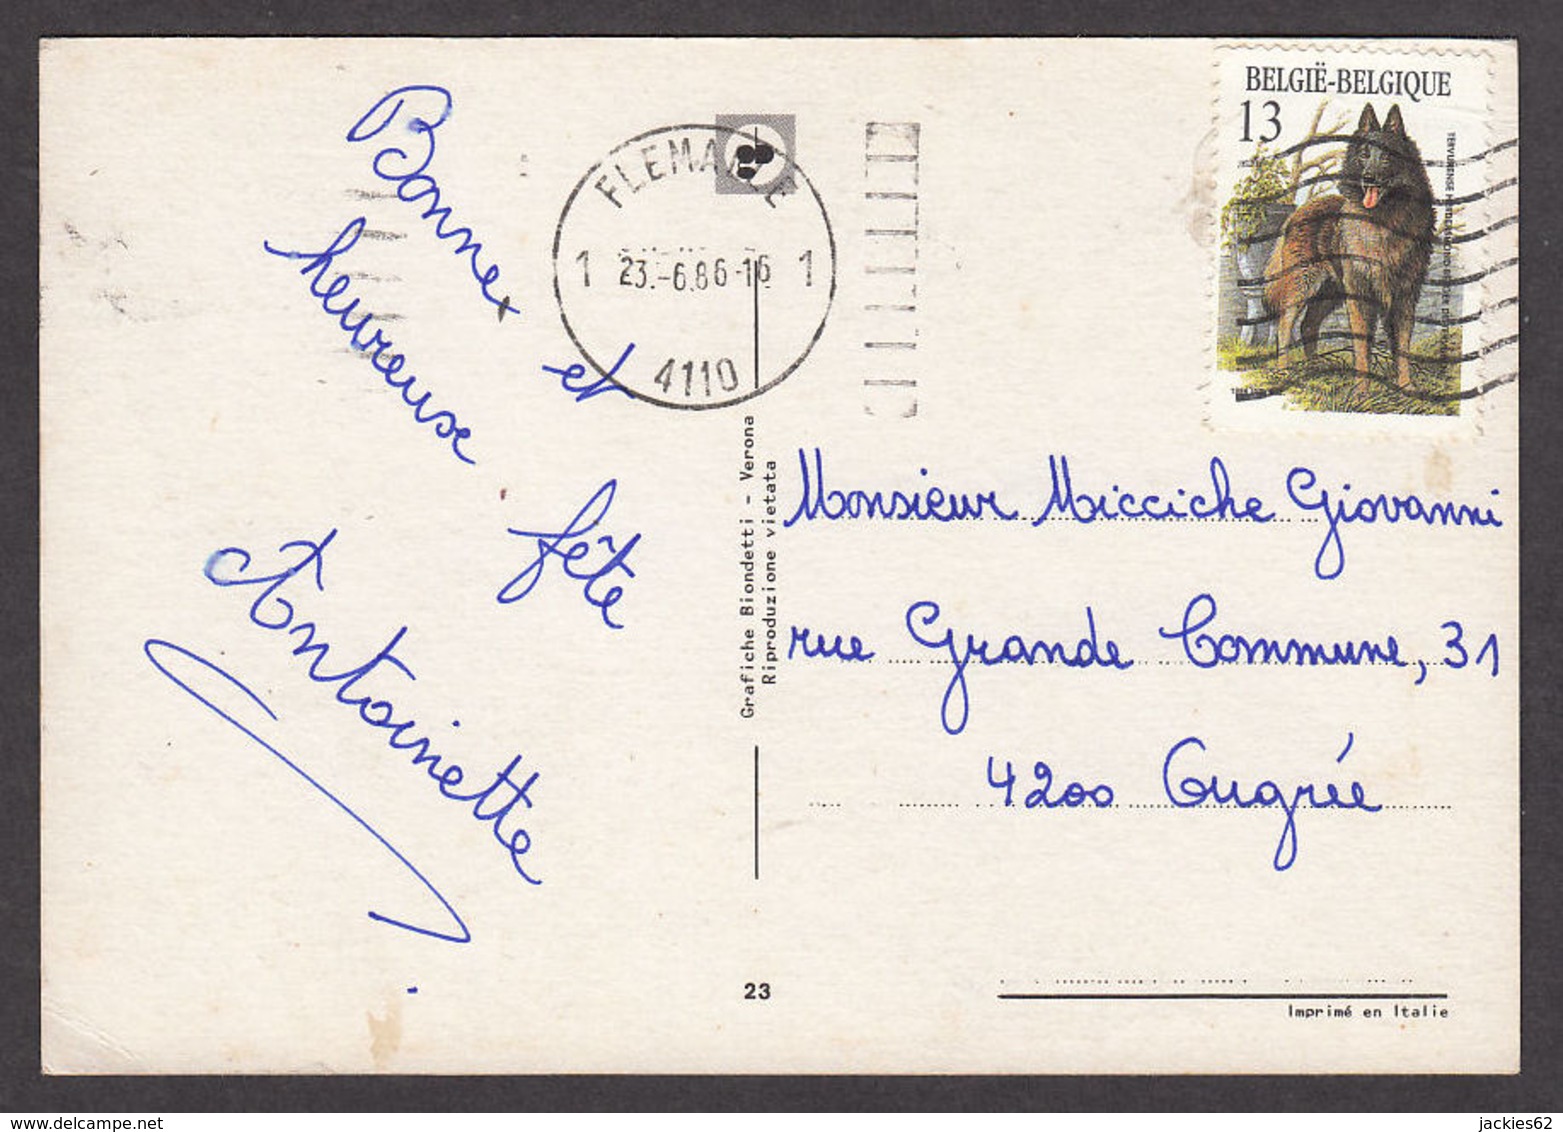 Bonne et
heureuse fête
Antoinette
FLEMALLE
1 23.-6.86-16 1
4110
BELGIË-BELGIQUE
13
Grafiche Biondetti - Verona
Riproduzione vietata
Monsieur Micciche Giovanni
rue Grande Commune, 31
4200 Ougrée
23
Imprimé en Italie
jackies62